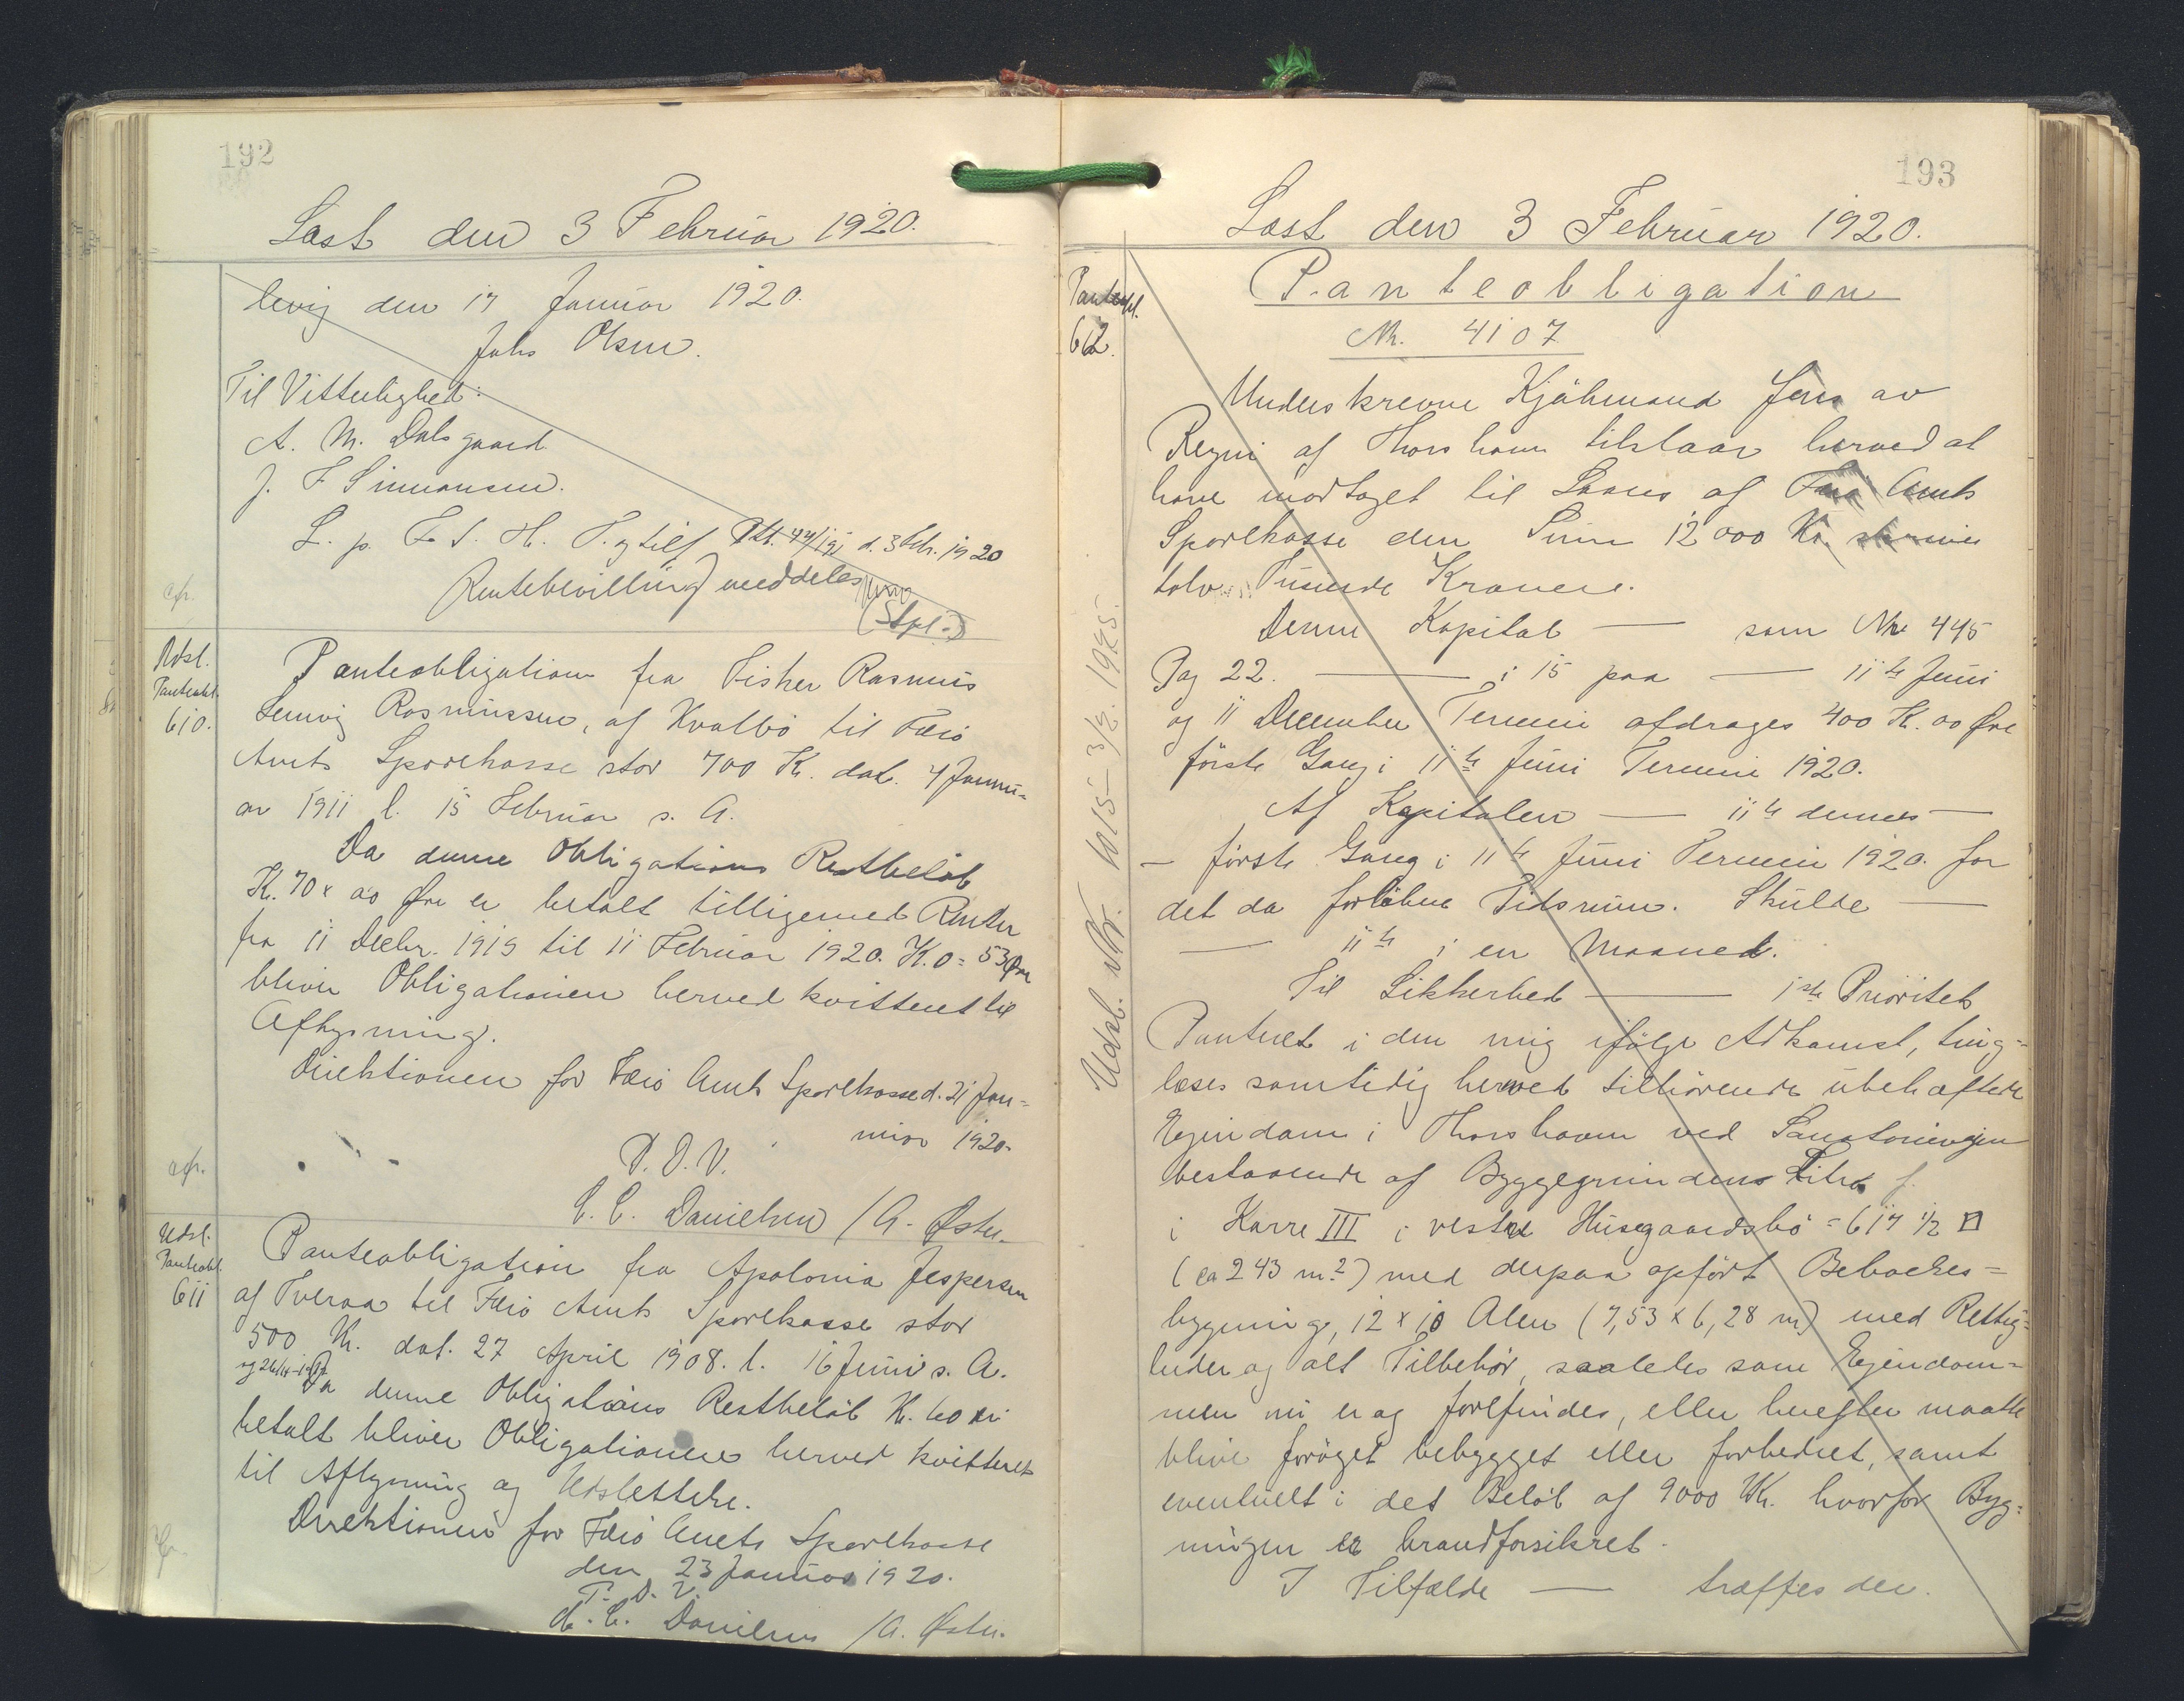 192
Læst den 3 Februar 1920.
levig den 17 Januar 1920.
Johs Olsen.
Til Vitterlighed:
A. M. Dalsgaard
J. F Simonsen.
L. p. F. S. H. T. og tilf d. 3 Febr. 1920
Rentebevilling meddeles
(Stpl.)
cfr.
Udsl.
Panteobl.
610.
Panteobligation fra Fisker Rasmus
Lenvig Rasmussen, af Kvalbø til Færø
Amts Sparekasse stor 700 Kr. dat. 4 Janu-
ar 1911 l. 15 Februar s. A.
Da denne Obligations Restbeløb
Kr. 70 x 00 Øre er betalt tilligemed Renter
fra 11 Decbr. 1919 til 11 Februar 1920. Kr. 0 = 53 Øre
bliver Obligationen herved kvitteret til
Aflysning.
Direktionen for Færø Amts Sparekasse d. 21 Jan-
uar 1920.
P. D. V.
C. C. Danielsen / A. Øster.
cfr.
Udsl.
Panteobl.
611
Panteobligation fra Apolonia Jespersen
af Tveraa til Færø Amts Sparekasse stor
500 Kr. dat. 27 April 1908. l. 16 Juni s. A.
Da denne Obligations Restbeløb Kr. 60 er
betalt bliver Obligationen herved kvitteret
til Aflysning og Udslettelse.
Direktionen for Færø Amts Sparekasse
den 23 Januar 1920.
P. D. V.
C. C. Danielsen / A. Øster.
cfr.
193
Læst den 3 Februar 1920.
Panteobl.
612.
Panteobligation
Nr. 4107
Underskrevne Kjøbmand Jens av
Reyni af Thorshavn tilstaar herved at
have modtaget til Laans af Færø Amts
Sparekasse den Sum 12000 Kr. skriver
tolv Tusinde Kroner.
Denne Kapital — som Nr 445
Pag 22. — i 15 paa — 11te Juni
og 11 December Termin afdrages 400 Kr. 00 Øre
første Gang i 11te Juni Termin 1920.
Af Kapitalen — 11te dennes —
— første Gang i 11te Juni Termin 1920. for
det da forløbne Tidsrum. Skulde —
— 11te i en Maaned.
Til Sikkerhed — 1ste Prioritets
Panteret i den mig ifølge Adkomst, ting-
læses samtidig herved tilhørende ubehæftede
Ejendom i Thorshavn ved Sanatorievejen
bestaaende af Byggegrundens Litra f.
i Karre III i vestre Húsagaardsbø = 617 1/2 □
(ca 243 m.2) med derpaa opført Beboelses=
bygning, 12 x 10 Alen (7,53 x 6,28 m) med Rettig=
heder og alt Tilbehør, saaledes som Ejendom=
men nu er og forefindes, eller herefter maatte
blive forøget bebygget eller forbedret, samt
eventuelt i det Beløb af 9000 Kr. hvorfor Byg=
ningen er brandforsikret.
I Tilfælde — træffes der.
Udsl. Nr. 1015 - 3/2. 1925.